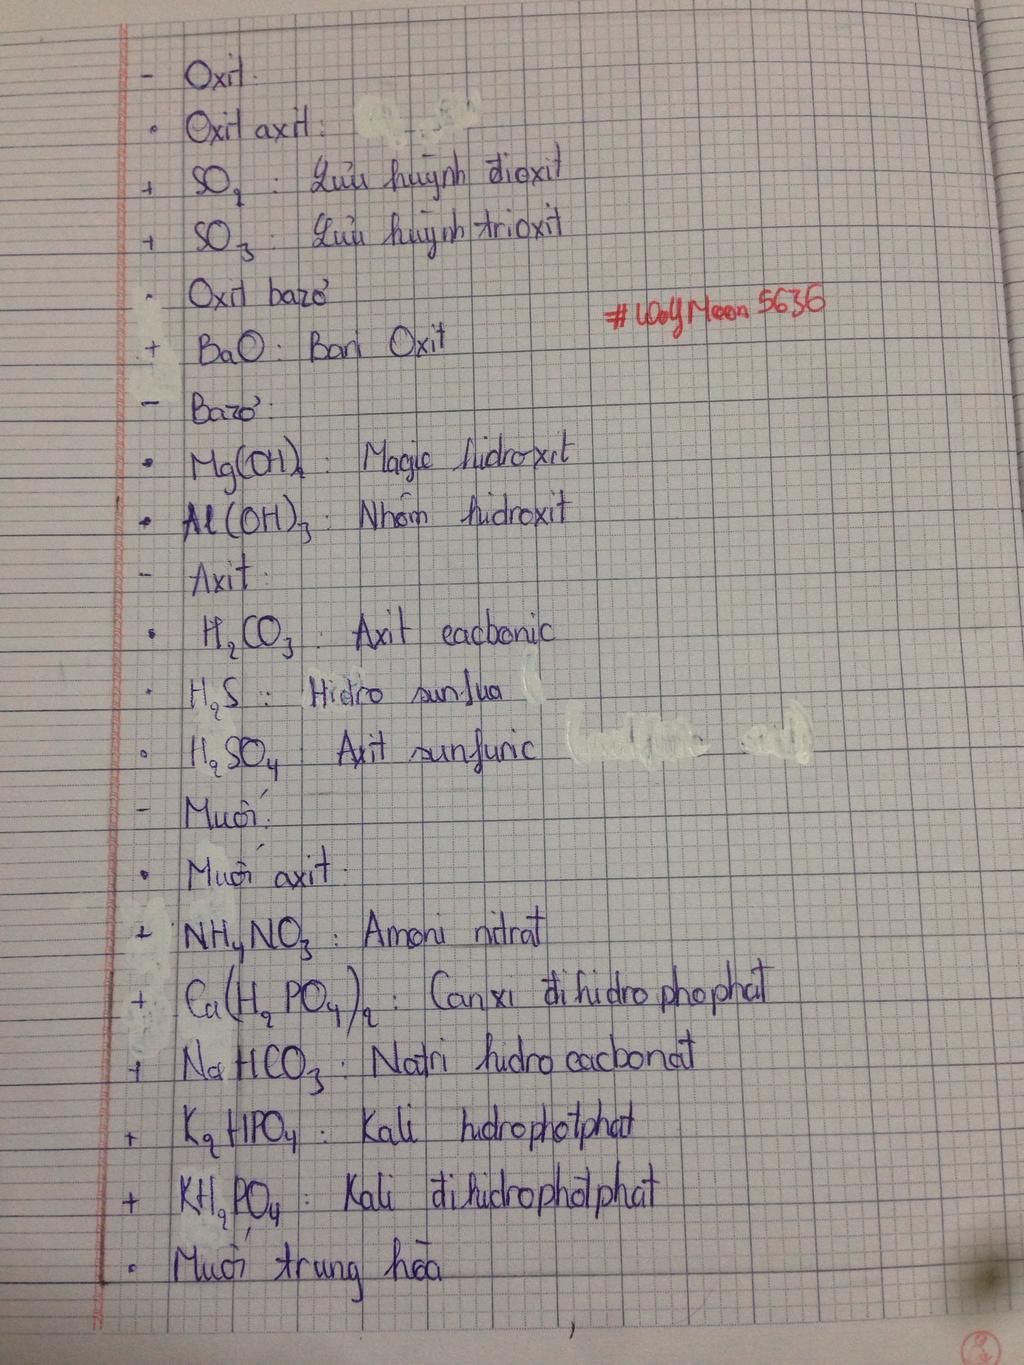 - Oxit:
• Oxit axit:
+ SO₂ : Lưu huỳnh đioxit
+ SO₃ : Lưu huỳnh trioxit
• Oxit bazơ
#WolfMoon5636
+ BaO : Bari Oxit
- Bazơ:
• Mg(OH)₂ : Magie hidroxit
• Al(OH)₃ : Nhôm hidroxit
- Axit:
• H₂CO₃ : Axit cacbonic
• H₂S : Hidro sunfua
• H₂SO₄ Axit sunfuric
- Muối:
• Muối axit:
+ NH₄NO₃ : Amoni nitrat
+ Ca(H₂PO₄)₂ : Canxi đihidrophophat
+ NaHCO₃ : Natri hidro cacbonat
+ K₂HPO₄ : Kali hidrophotphat
+ KH₂PO₄ : Kali đihidrophotphat
• Muối trung hòa